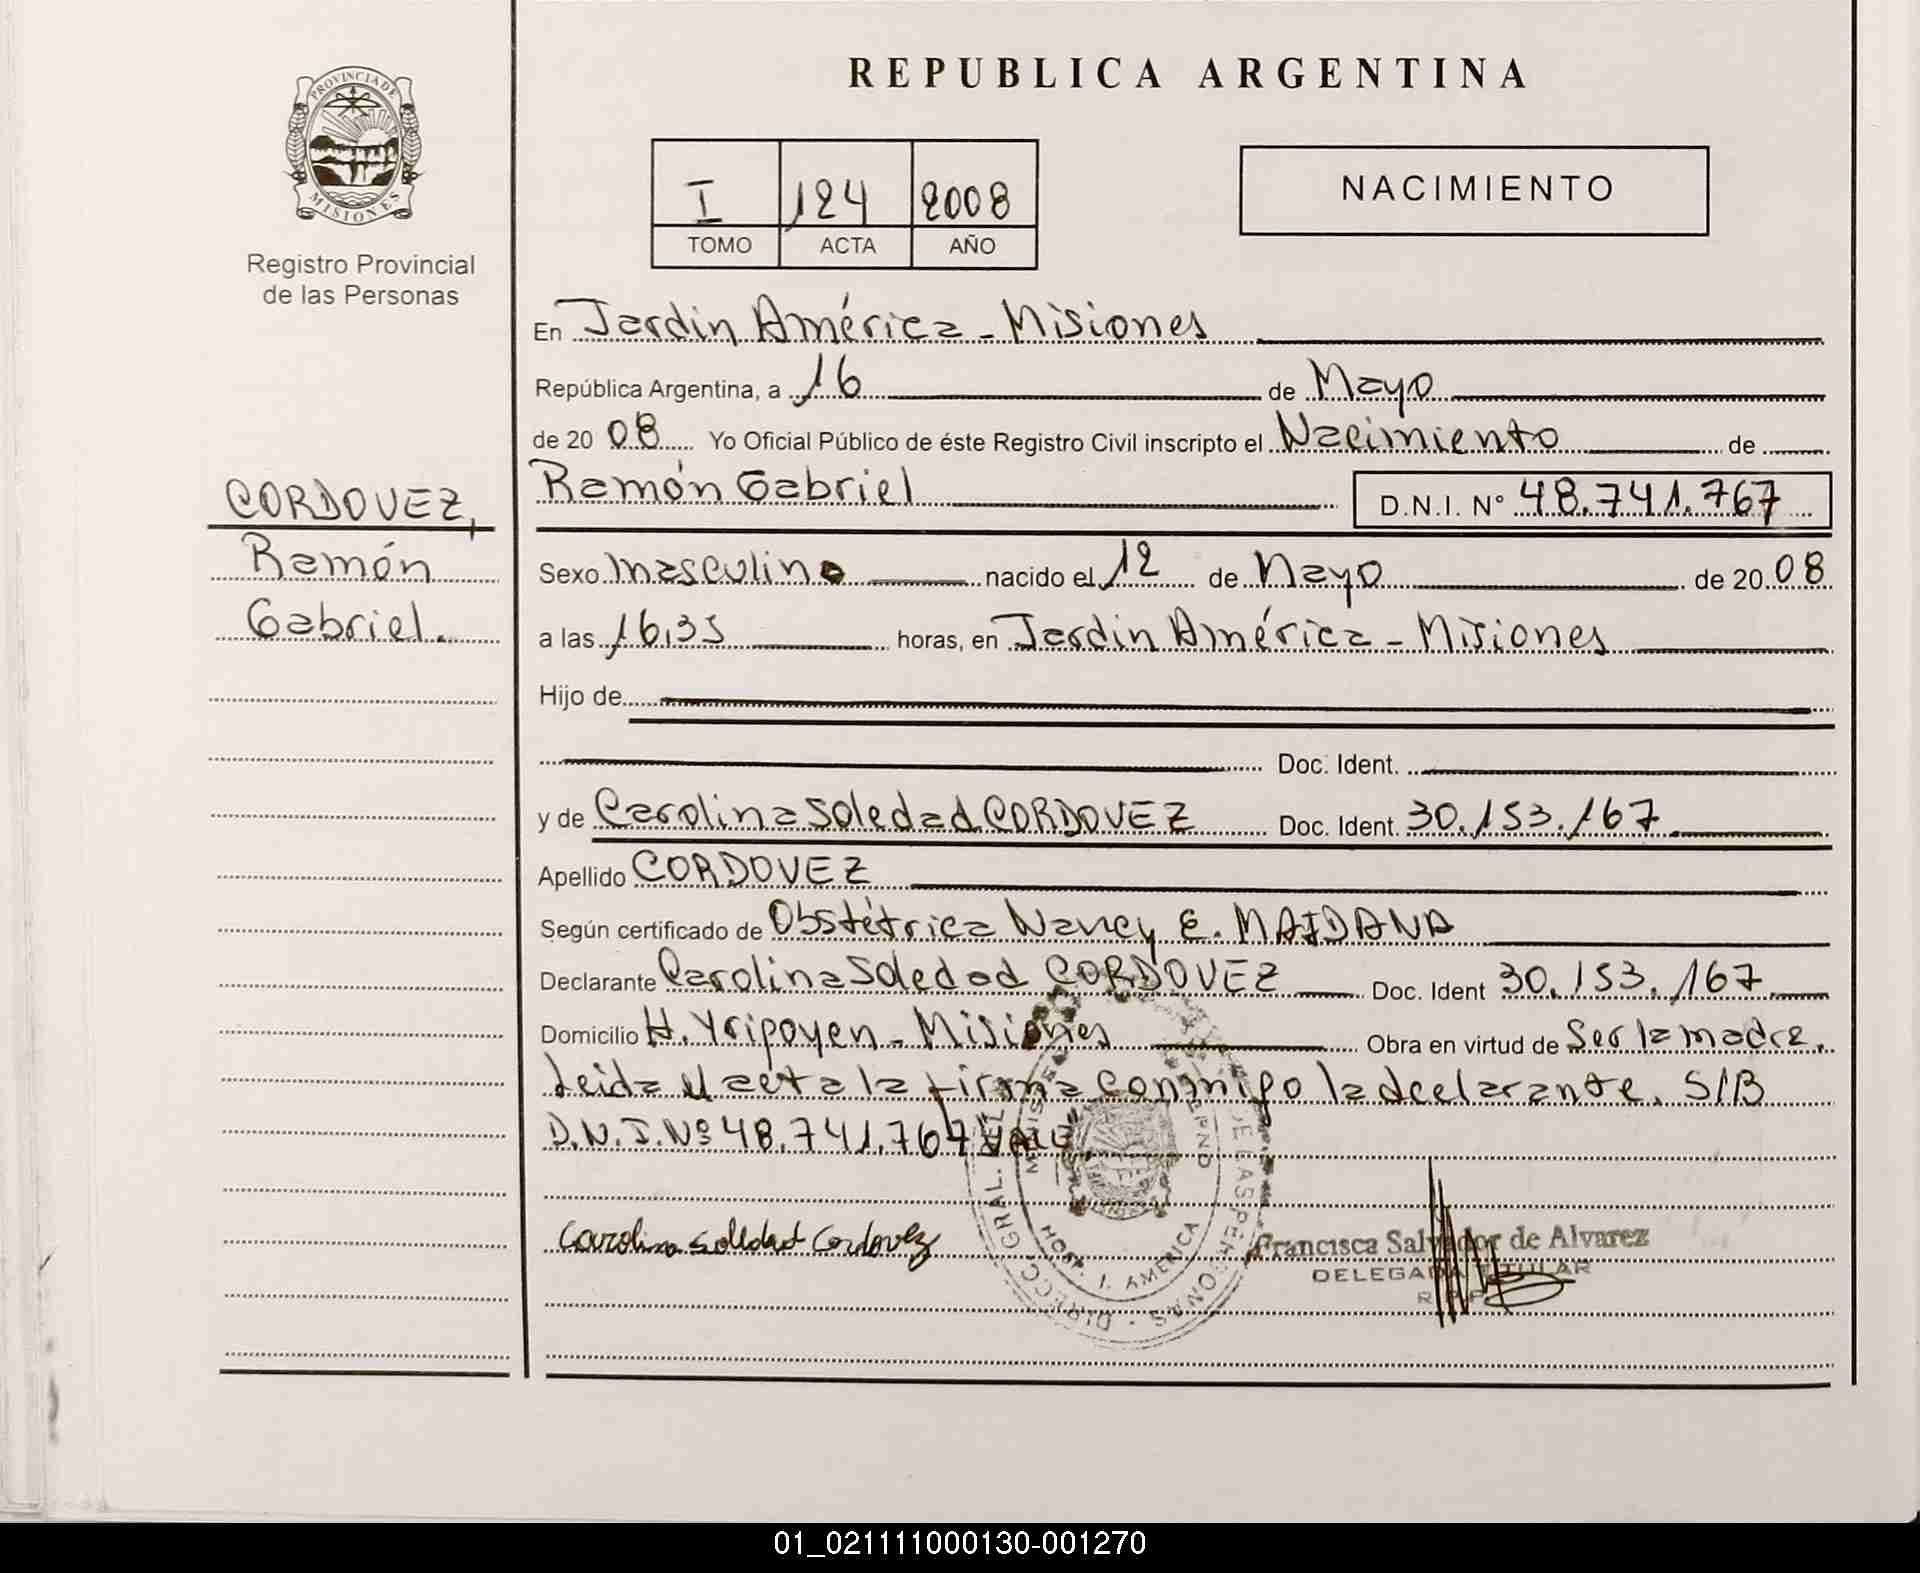 PROVINCIA DE
MISIONES
Registro Provincial
de las Personas
CORDOVEZ,
Ramón
Gabriel.
REPUBLICA ARGENTINA
I 124 2008
TOMO ACTA AÑO
NACIMIENTO
En Jardin América - Misiones
República Argentina, a 16 de Mayo
de 20 08 Yo Oficial Público de éste Registro Civil inscripto el Nacimiento de
Ramón Gabriel D.N.I. N° 48.741.767
Sexo masculino nacido el 12 de Mayo de 20 08
a las 16,35 horas, en Jardin América - Misiones
Hijo de
Doc. Ident.
y de Carolina Soledad CORDOVEZ Doc. Ident. 30.153.167
Apellido CORDOVEZ
Según certificado de Obstétrica Nancy E. MAIDANA
Declarante Carolina Soledad CORDOVEZ Doc. Ident 30.153.167
Domicilio H. Yrigoyen - Misiones Obra en virtud de Ser la madre.
Leida el acta la firma conmigo la declarante. S/B
D.N.I. Nº 48.741.767 VALE.
Carolina Soledad Cordovez
DIRECC. GRAL. DEL DE LAS PERSONAS
HOSP. J. AMERICA
Francisca Salvador de Alvarez
DELEGADA TITULAR
R.P.P.
01_021111000130-001270